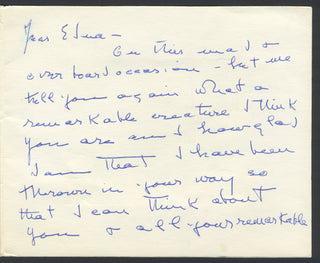 Dear Edna -
On this mad &
overboard occasion - let me
tell you again what a
remarkable creature I think
you are and how glad
I am that I have been
thrown in your way so
that I can think about
you & all your remarkable